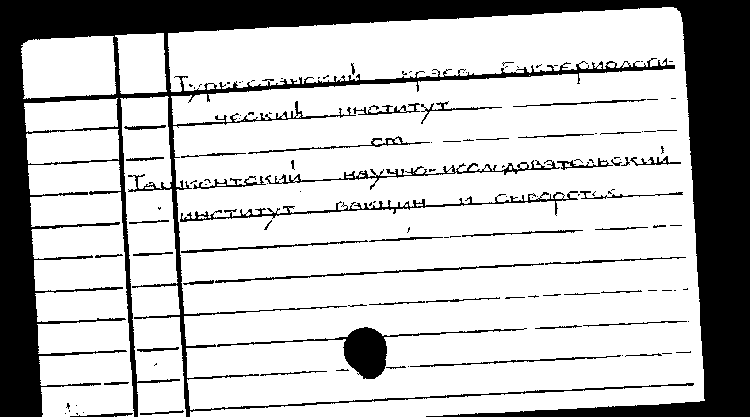 Туркестанский краев. бактериологи-
ческий институт
см.
Ташкентский научно-исследовательский
институт вакцин и сывороток.